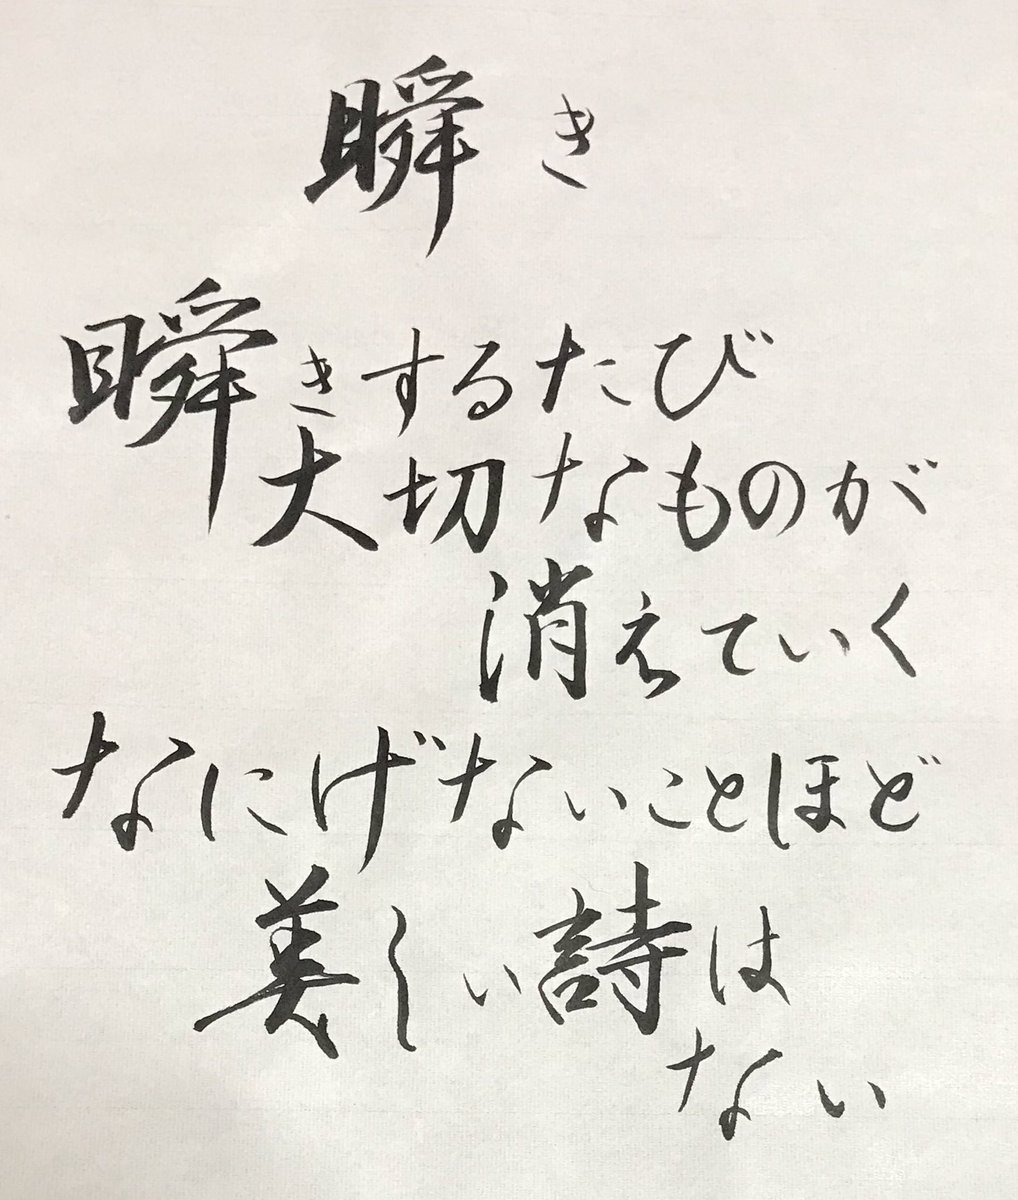 瞬き
瞬きするたび
大切なものが
消えていく
なにげないことほど
美しい詩は
ない